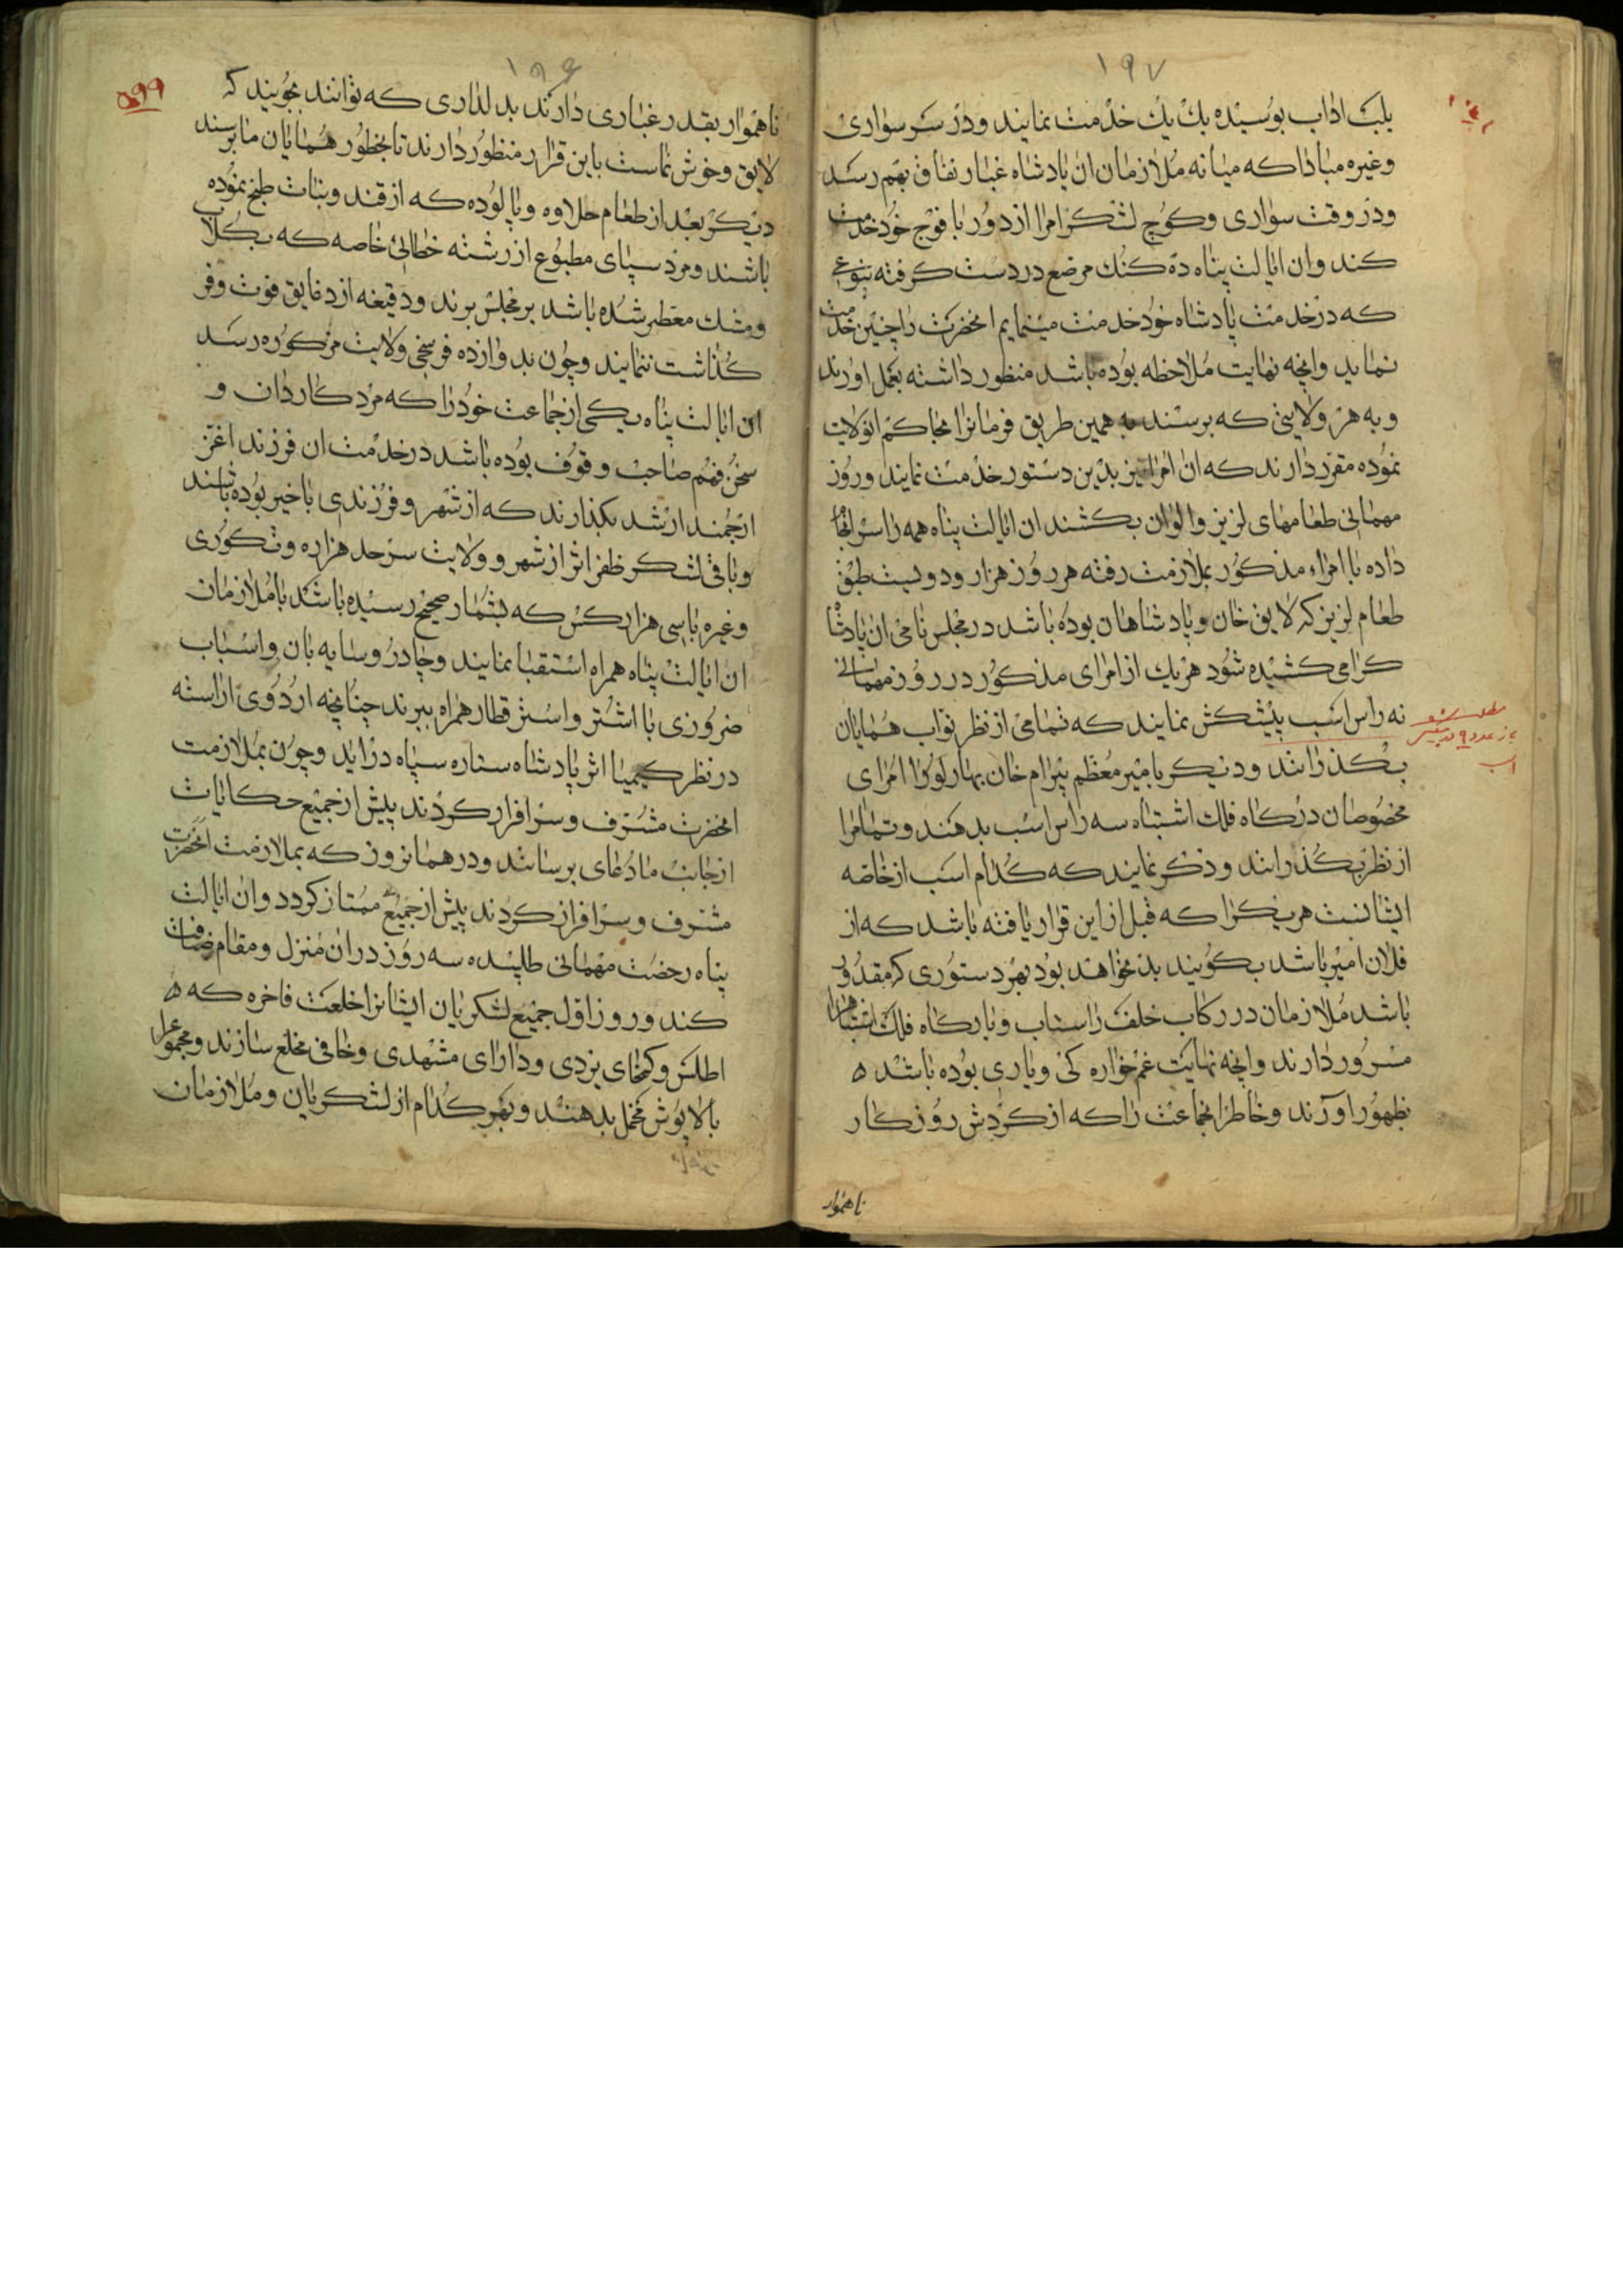 ۱۹۷
یلیت اداب بوسیده یك یك خدمت نمایند و در سر سواری
وغیره مبادا که میانه ملازمان ان پادشاه غبار نفاق بهم رسد
ودر وقت سواری وکوچ لشکر امرا از دور با فوج خود خدمت
کند وان ایالت پناه در دست کرفته بنوعی
که در خدمت پادشاه خود خدمت مینمایم انحضرت را چنین خدمت
نماید وانچه نهایت ملاحظه بوده باشد منظور داشته بعمل اورند
و به هر ولایتی که برسند به همین طریق فرمانرا بحاکم انولایت
نموده مقرر دارند که ان امرا نیز بدین دستور خدمت نمایند وروز
مهمانی طعامهای لزیز والوان بکشند ان ایالت پناه همه را سرانجام
داده با امراء مذکور بملازمت رفته هر روز هزار ودویست طبق
طعام لزیز که لایق خان وپادشاهان بوده باشد در مجلس نامی ان پادشاه
کرامی کشیده شود هر یك از امرای مذکور در روز مهمانی
نه راس اسب پیشکش نمایند که تمامی از نظر نواب همایان
بکذرانند ودیکر بامیر معظم بیرام خان بهارلو وا امرای
مخصوصان درکاه فلك اشتباه سه راس اسب بدهند وتمامرا
از نظر بکذرانند و ذکر نمایند که کدام اسب از خاصه
ایشانست هر یکرا که قبل از این قرار یافته باشد که از
فلان امیر باشد بکویند بد نخواهد بود بهر دستوری که مقدور
باشد ملازمان در رکاب خلف را ستاب وبارکاه فلك اشتباه را
مسرور دارند وانچه نهایت غمخواره کی ویاری بوده باشد ه
بظهور اورند وخاطر انجماعت را که از کردش روزکار
ناهموار
۱۹۶
ناهموار بقدر غباری دارند بدلداری که توانند بجویند که
لایق وخوش نماست باین قرار منظور دارند تا بحضور همایان ما برسند
دیکر بعد از طعام حلاوه وپالوده که از قند ونبات طبخ نموده
باشند ومرد سپاى مطبوع از رشته خطائی خاصه که بکلاب
ومشك معطر شده باشد بر مجلس برند ودقیقه از دقایق فوت وفر
کذاشت ننمایند وچون بدوازده فرسخی ولایت مزکوره رسد
ان ایالت پناه یکی از جماعت خود را که مرد کاردان و
سخن فهم صاحب وقوف بوده باشد در خدمت ان فرزند اعز
ارجمند ارشد بکذارند که از شهر وفرزندی باخیر بوده باشند
وباقی لشکر ظفر اثر از شهر وولایت سرحد هزاره ونکوری
وغیره باسی هزار کس که بشمار صحیح رسیده باشد با ملازمان
ان ایالت پناه همراه استقبا نمایند وچادر وسایه بان واسباب
ضروری با اشتر واستر قطار همراه ببرند چنانچه اردوی اراسته
در نظر کیمیا اثر پادشاه ستاره سپاه دراید وچون بملازمت
انحضرت مشرف وسرافراز کردند پیش از جمیع حکایات
ازجانب ما دعای برسانند ودر همانروز که بملازمت انحضرت
مشرف وسرافراز کردند پیش از جمیع ممتاز کردد وان ایالت
پناه رخصت مهمانی طلبیده سه روز دران منزل ومقام ضیافت
کند وروز اول جمیع لشکریان ایشانرا خلعت فاخره که ه
اطلس وکمخای یزدی ودارای مشهدی وخافی مخلع سازند ومجموعرا
بالاپوش مخمل بدهند وبهر کدام از لشکریان وملازمان